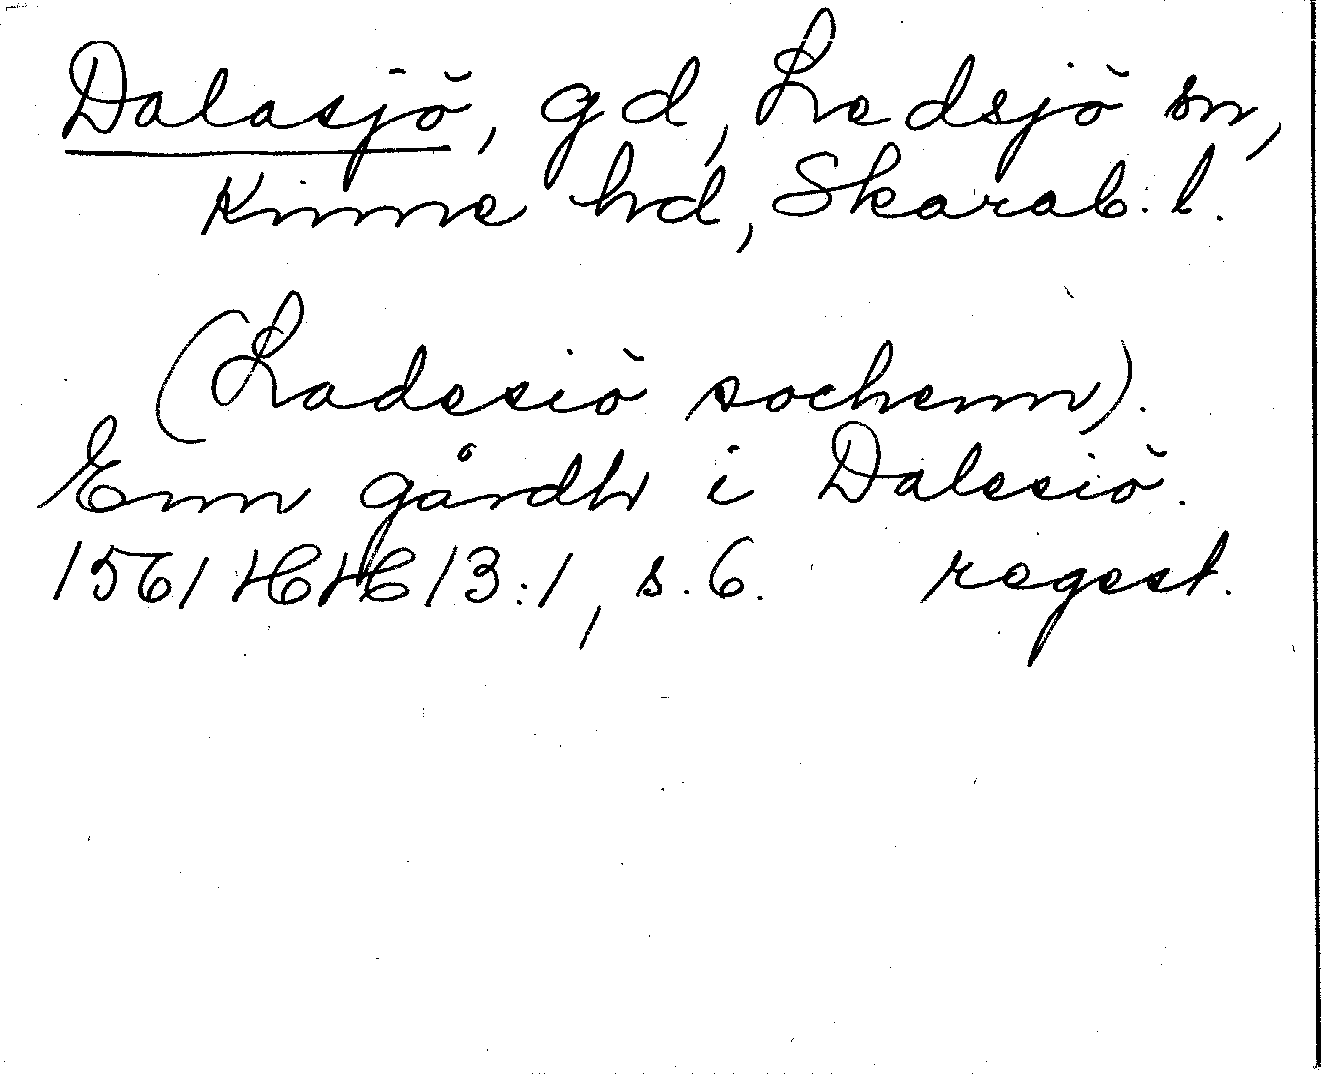 Dalasjö, gd, Ledsjö sn,
Kinne hd, Skarab. l.
(Ladesiö sochenn).
Enn gårdh i Dalesiö.
1561 HH 13:1, s. 6. regest.